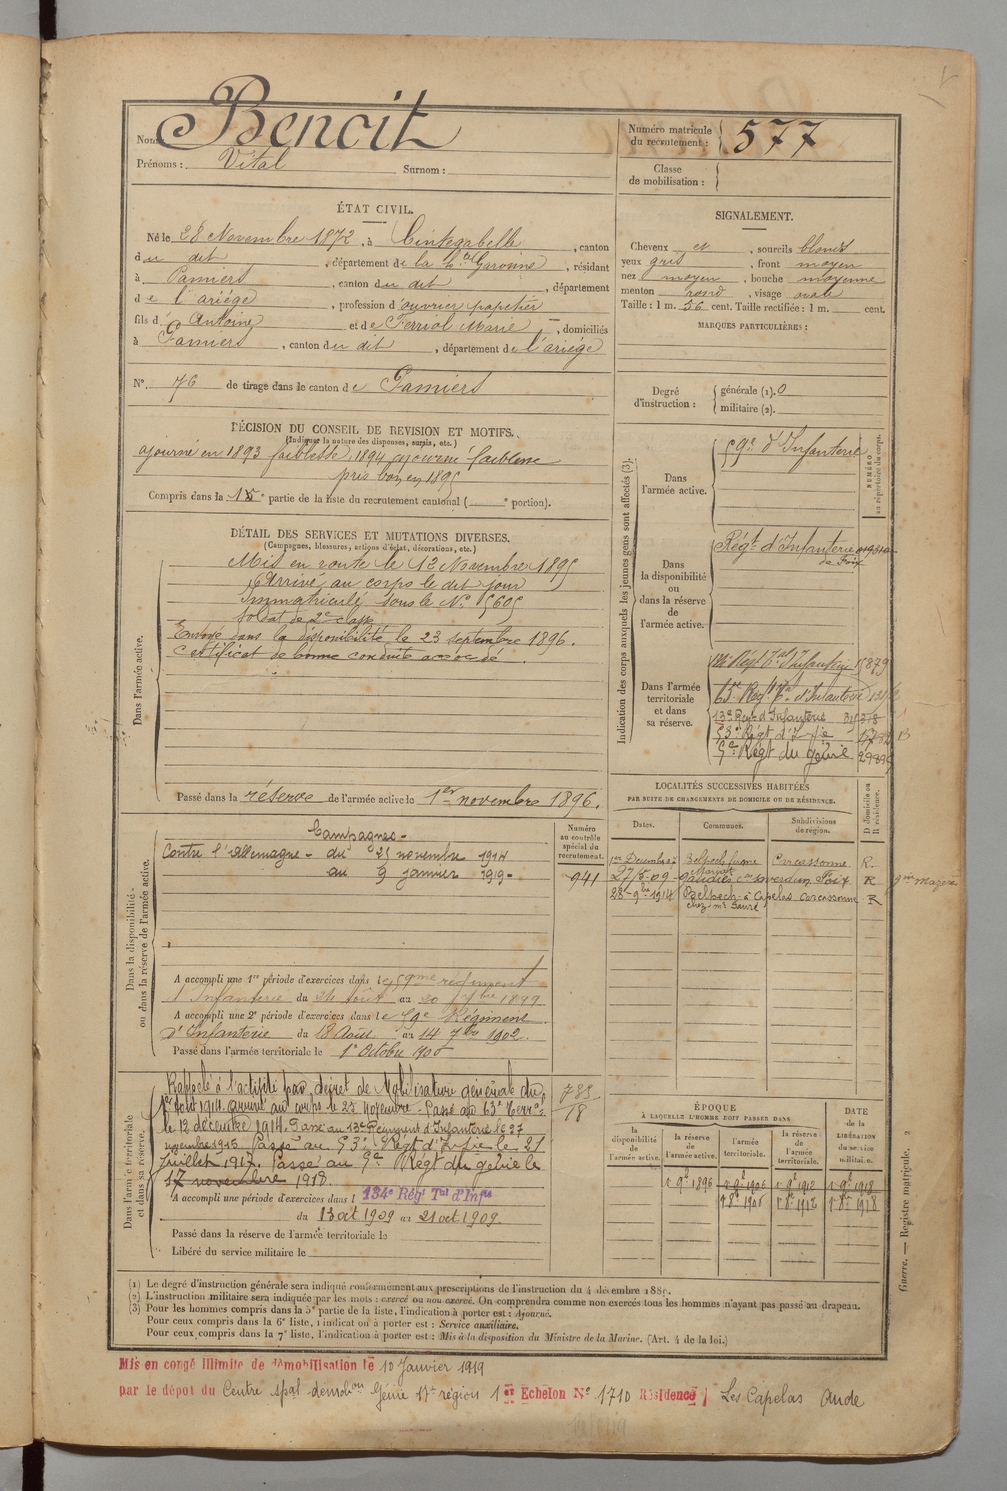 Nom : Benoit
Prénoms : Vital Surnom :
Numéro matricule du recrutement : 577
Classe de mobilisation :
ÉTAT CIVIL.
Né le 28 Novembre 1872, à Cintegabelle, canton
du dit, département de la Hte Garonne, résidant
à Pamiers, canton du dit, département
de l'ariége, profession d'ouvrier papetier
fils d'Antoine et de Ferriol Marie, domiciliés
à Pamiers, canton du dit, département de l'ariége
N° 76 de tirage dans le canton de Pamiers
SIGNALEMENT.
Cheveux et, sourcils blonds
yeux gris, front moyen
nez moyen, bouche moyenne
menton rond, visage ovale
Taille : 1 m. 56 cent. Taille rectifiée : 1 m. cent.
MARQUES PARTICULIÈRES :
Degré d'instruction : générale (1). 0
militaire (2).
DÉCISION DU CONSEIL DE REVISION ET MOTIFS.
(Indiquer la nature des dispenses, sursis, etc.)
ajourné en 1893 faiblesse, 1894 ajourné faiblesse
pris bon en 1895
Compris dans la 15e partie de la liste du recrutement cantonal ( e portion).
DÉTAIL DES SERVICES ET MUTATIONS DIVERSES.
(Campagnes, blessures, actions d'éclat, décorations, etc.)
Dans l'armée active.
Mis en route le 12 Novembre 1895
Arrivé au corps le dit jour
immatriculé sous le N° 5605
Soldat de 2e classe
Envoyé dans la disponibilité le 23 septembre 1896.
Certificat de bonne conduite accordé.
Passé dans la réserve de l'armée active le 1er novembre 1896.
Indication des corps auxquels les jeunes gens sont affectés (3).
NUMÉRO au répertoire du corps.
Dans l'armée active.
59e d'Infanterie
Dans la disponibilité ou dans la réserve de l'armée active.
Régt d'Infanterie
de Foix
Dans l'armée territoriale et dans sa réserve.
134e Régt Tal d'Infanterie 15879
63e Regt Tal d'Infanterie
13e Regt d'Infanterie
53e Régt d'Infie
5e Régt du génie
LOCALITÉS SUCCESSIVES HABITÉES
PAR SUITE DE CHANGEMENTS DE DOMICILE OU DE RÉSIDENCE.
Dates. Communes. Subdivisions de région. D domicile ou R résidence.
Belpech ferme Carcassonne R.
27-5-09 Gaudiès con Saverdun Foix R
28-9bre 1914 Belpech à Capelas Carcassonne R
chez Mr
Dans la disponibilité ou dans la réserve de l'armée active.
Numéro au contrôle spécial du recrutement.
941
Campagnes -
Contre l'Allemagne - du 25 novembre 1914
au 9 janvier 1919 -
A accompli une 1re période d'exercices dans le 59me régiment
d'Infanterie du 24 Août au 20 7bre 1899
A accompli une 2e période d'exercices dans le 59e Régiment
d'Infanterie du 18 Août au 14 7bre 1902.
Passé dans l'armée territoriale le 1er Octobre 1906
Dans l'armée territoriale et dans sa réserve.
Rappelé à l'activité par décret de Mobilisation générale du
1er Août 1914 arrivé au corps le 25 Novembre - Passé au 63e Terral
le 12 décembre 1914. Passé au 13e Régiment d'Infanterie le 27
novembre 1915. Passé au 53e Régt d'Infie le 21
Juillet 1917. Passé au 5e Régt du génie le
17 novembre 1918.
A accompli une période d'exercices dans l 134e Régt Tal d'Infie
du 13 oct 1909 au 21 oct 1909.
Passé dans la réserve de l'armée territoriale le
Libéré du service militaire le
ÉPOQUE
À LAQUELLE L'HOMME DOIT PASSER DANS
la disponibilité de l'armée active. la réserve de l'armée active. l'armée territoriale. la réserve de l'armée territoriale.
DATE de la LIBÉRATION du service militaire.
1 9bre 1896 1 9bre 1906 1 9bre 1912 1 9bre 1918
1 8bre 1906 1 8bre 1912 1 8bre 1918
Guerre. — Registre matricule. 2
(1) Le degré d'instruction générale sera indiqué conformément aux prescriptions de l'instruction du 4 décembre 1889.
(2) L'instruction militaire sera indiquée par les mots : exercé ou non exercé. On comprendra comme non exercés tous les hommes n'ayant pas passé au drapeau.
(3) Pour les hommes compris dans la 5e partie de la liste, l'indication à porter est : Ajourné.
Pour ceux compris dans la 6e liste, l'indication à porter est : Service auxiliaire.
Pour ceux compris dans la 7e liste, l'indication à porter est : Mis à la disposition du Ministre de la Marine. (Art. 4 de la loi.)
Mis en congé illimité de démobilisation le 10 Janvier 1919
par le dépot du Centre spal démobon Génie 17e région 1er Echelon N° 1710 Résidence Les Capelas Aude